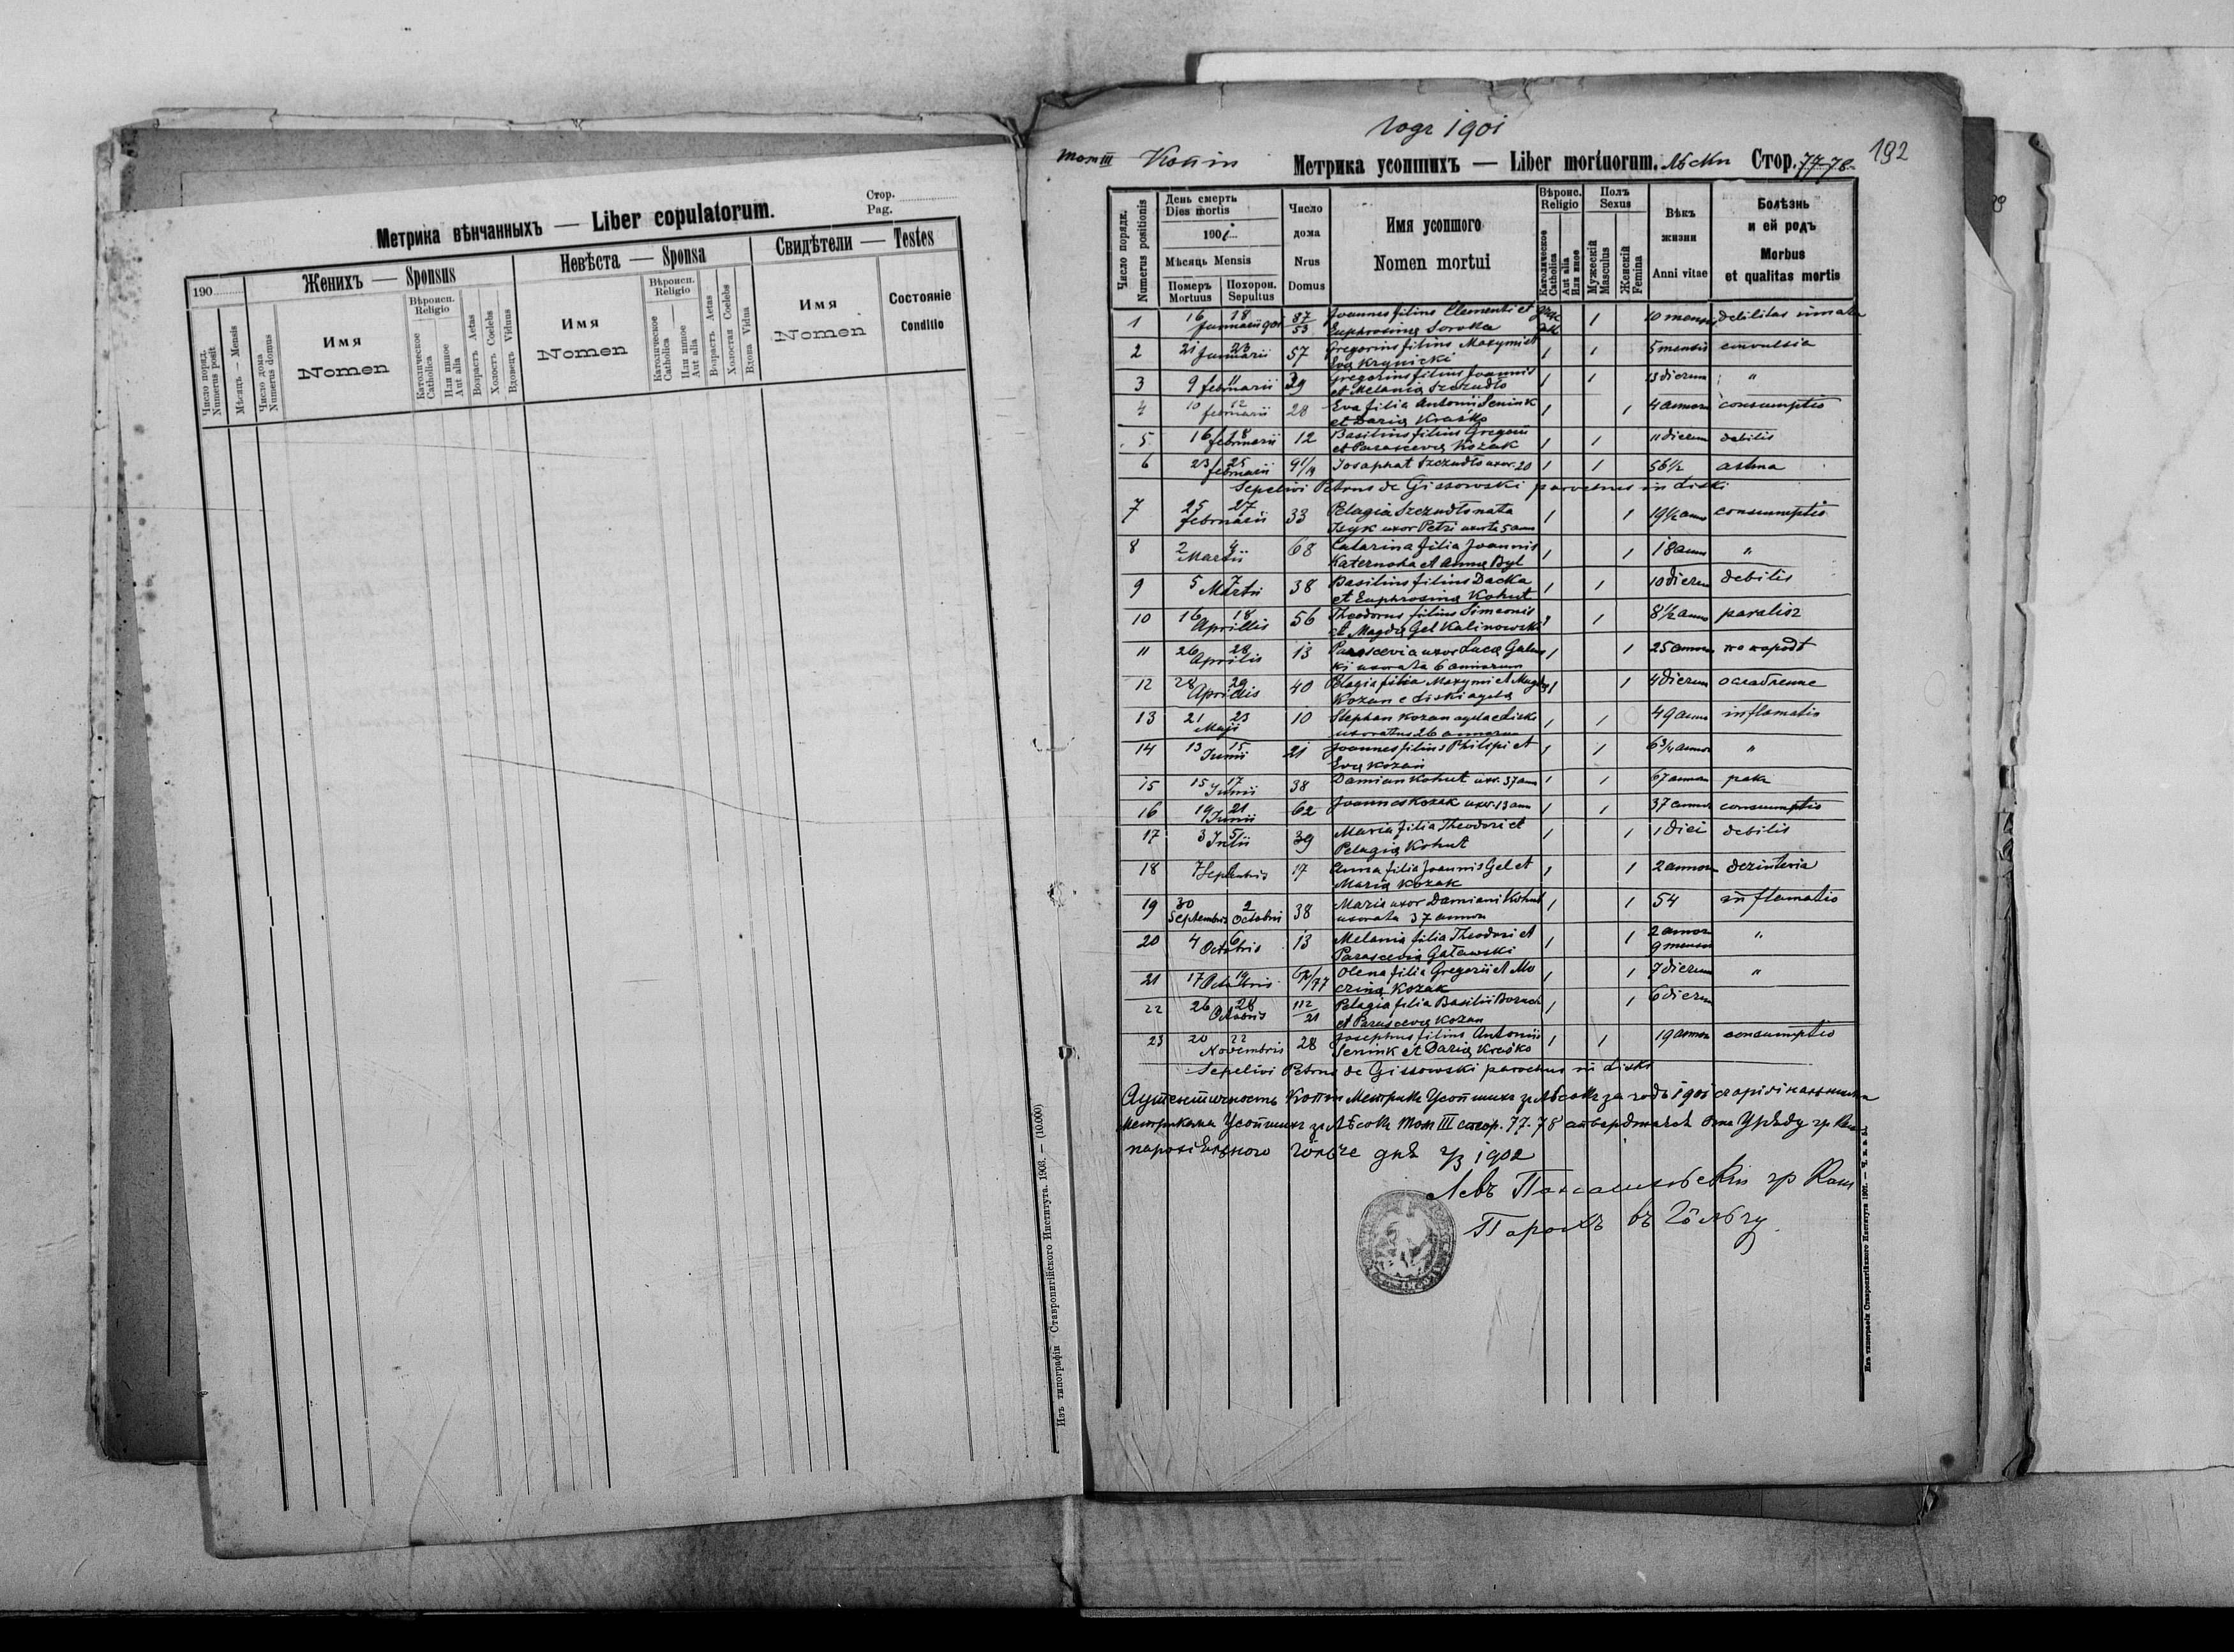 Метрика вѣнчанныхъ — Liber copulatorum.
Стор.
Pag.
190
Женихъ — Sponsus
Невѣста — Sponsa
Свидѣтели — Testes
Число поряд.
Numerus posit
Мѣсяць — Mensis
Число дома
Numerus domus
Имя
Nomen
Вѣроисп.
Religio
Католическое
Catholica
Или инное
Aut alia
Возрастъ Aetas
Холостъ Coelebs
Вдовець Viduus
Имя
Nomen
Вѣроисп.
Religio
Католическое
Catholica
Или инное
Aut alia
Возрастъ Aetas
Холостая Coelebs
Вдова Vidua
Имя
Nomen
Состояніе
Conditio
Изъ типографіи Ставропигійского Института. 1903. — (10.000)
годъ 1901
192
Том III Копія Метрика усопшихъ — Liber mortuorum. Лѣски Стор. 77-78
Число порядк.
Numerus positionis
День смерть
Dies mortis
1901
Мѣсяць Mensis
Померъ
Mortuus
Похорон.
Sepultus
Число
дома
Nrus
Domus
Имя усопшого
Nomen mortui
Вѣроис.
Religio
Католическое
Catholica
Aut alia
Или иное
Полъ
Sexus
Мужескій
Masculus
Женскій
Femina
Вѣкъ
жизни
Anni vitae
Болѣзнь
и ей родъ
Morbus
et qualitas mortis
1 16 18 Januarii 901 87/53 Joannes filius Clementi et Euphrosina Soroka 1 10 mensis debilitas innata
2 21 23 Januarii 57 Gregorius filius Maxymi et Eva Krynicki 1 1 5 mensis convulsia
3 9 11 februarii 39 Gregorius filius Joannis et Melania Szczudło 1 1 13 dierum "
4 10 12 februarii 28 Eva filia Antonii Seniuk et Daria Kraśko 1 1 4 annor consumptio
5 16 18 februarii 12 Basilius filius Gregorii et Parascevia Kozak 1 1 11 dierum debilis
6 23 25 februarii 91/19 Josaphat Szczudło uxor. 20 1 1 56 1/2 astma
Sepelivi Petrus de Gissowski parochus in Liski
7 25 27 februarii 33 Pelagia Szczudło nata uxor Petri 5 ann 1 1 19 1/2 anno consumptio
8 2 4 Martii 68 Catarina filia Joannis Katernoha et Anna Byl 1 1 18 ann "
9 5 7 Martii 38 Basilius filius Dacka et Euphrosina Kohut 1 1 10 dierum debilis
10 16 18 Aprillis 56 Theodorus filius Simeonis et Magda Gel Kalinowski 1 1 8 1/2 anno paraliż
11 26 28 Aprilis 13 Parascevia uxor Luca Galuski uxorata 6 annorum 1 1 25 annor
12 28 29 Aprilis 40 Pelagia filia Maxymi et Magda Kozan e Liski 1 1 4 dierum ослабленіе
13 21 23 Maji 10 Stephan Kozan e Liski uxoratus 26 annorum 1 1 49 anno inflamatio
14 13 15 Junii 21 Joannes filius Philipi et Eva Kozan 1 1 6 3/4 annor "
15 15 17 Junii 38 Damian Kohut uxor. 37 ann 1 1 67 annor ракъ
16 19 21 Junii 62 Joannes Kozak uxor. 13 ann 1 1 37 annor consumptio
17 3 5 Julii 39 Maria filia Theodori et Pelagia Kohut 1 1 1 diei debilis
18 7 Septembris 17 Anna filia Joannis Gel et Maria Kozak 1 1 2 annor dezinteria
19 30 Septembris 2 Octobris 38 Maria uxor Damiani Kohut uxorata 37 annor 1 1 54 inflamatio
20 4 6 Octobris 13 Melania filia Theodori et Parascevia Gałowski 1 1 2 annor 9 mensor "
21 17 19 Octobris Olena filia Gregorii et Moczina Kozak 1 1 7 dierum "
22 26 28 Octobris 112/21 Pelagia filia Basilii et Parascevia Kozan 1 1 6 dierum
23 20 22 Novembris 28 Josephus filius Antonii Seniuk et Daria Kraśko 1 1 19 annor consumptio
Sepelivi Petrus de Gissowski parochus in Liski
Копіи Метрики Усопшихъ зъ Лѣсокъ за годъ 1901 съ
Метриками Усопшихъ зъ Лѣсокъ Том III стор. 77-78 Уряду гр
дня 1902
Левъ гр Кат
Парохъ въ
Изъ типографіи Ставропигійского Института 1901.